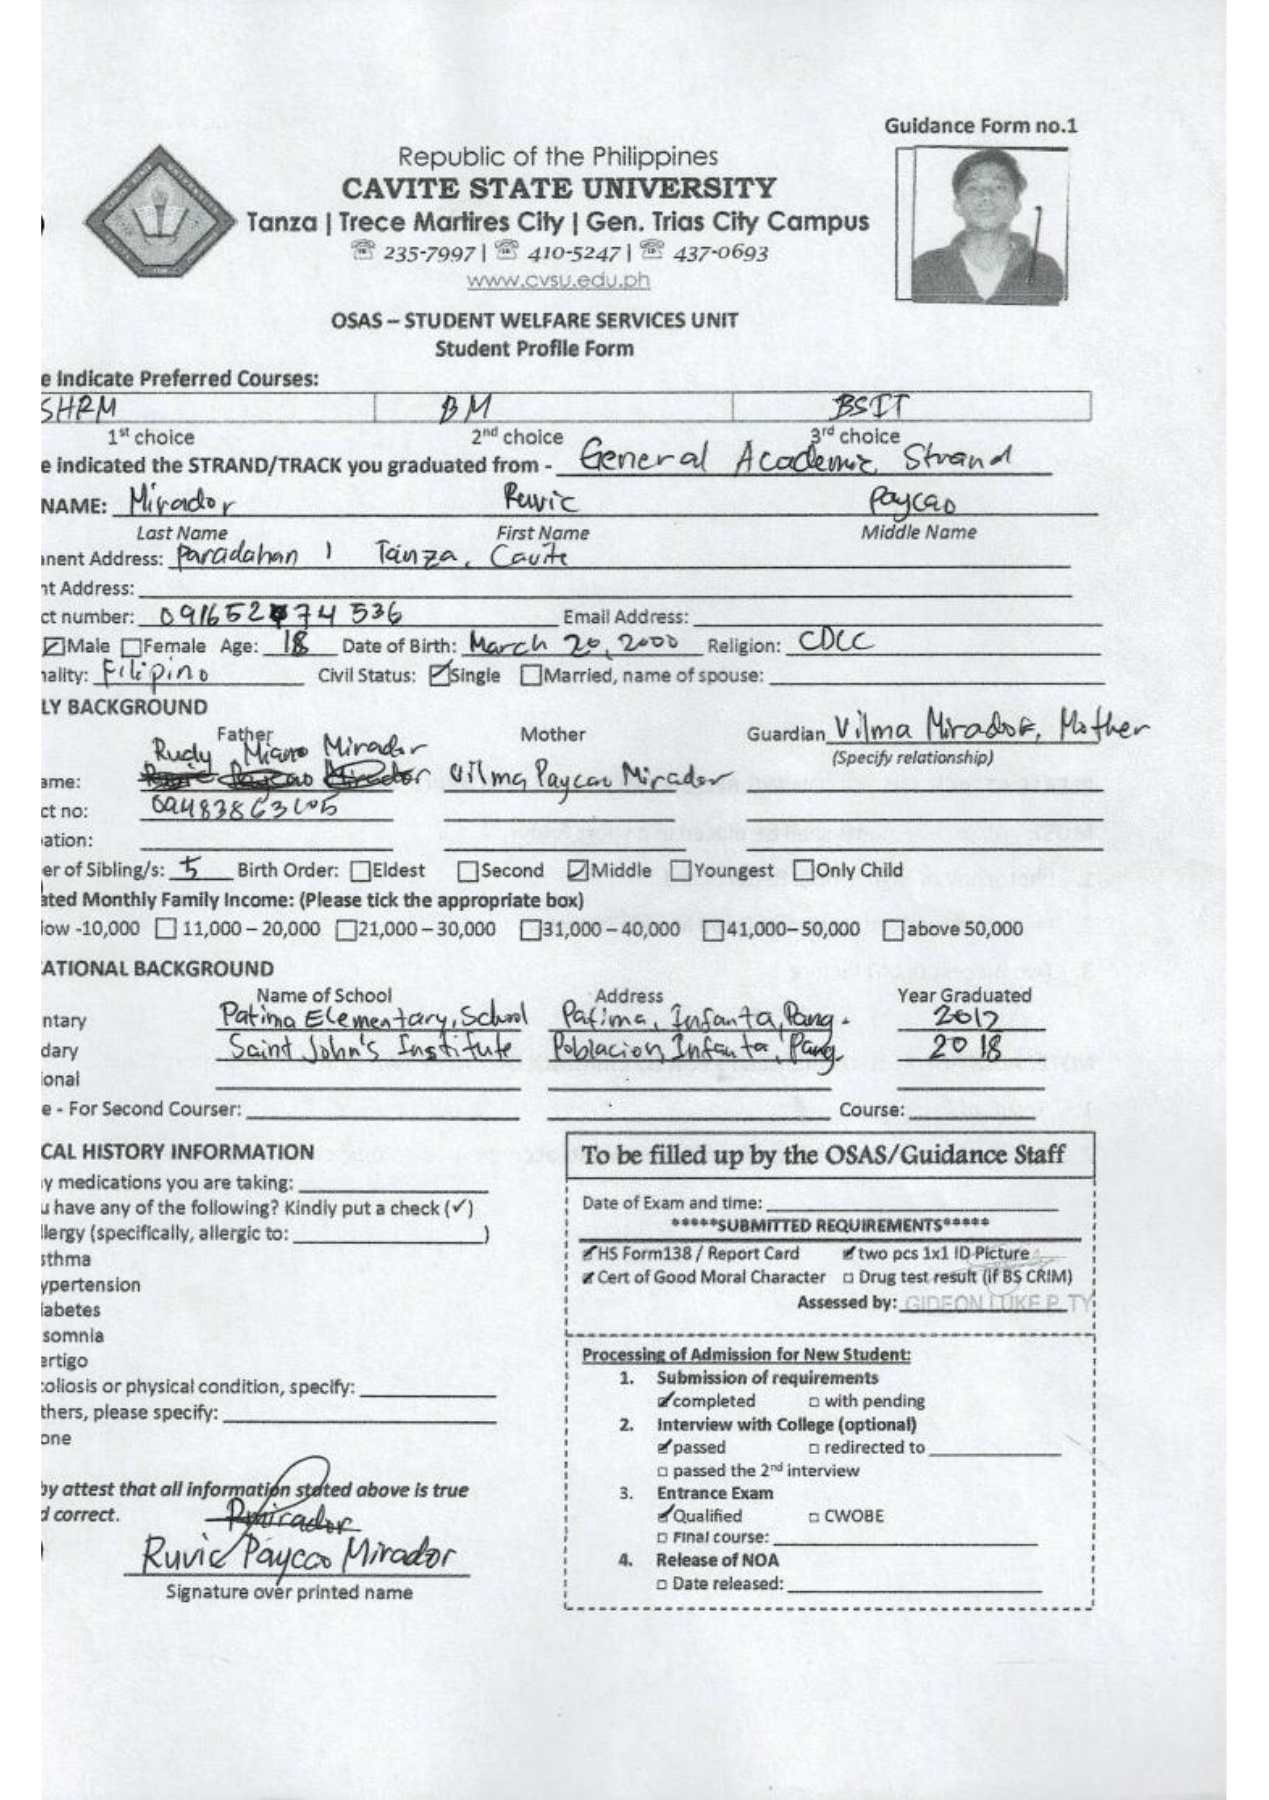 Guidance Form no.1
Republic of the Philippines
CAVITE STATE UNIVERSITY
Tanza | Trece Martires City | Gen. Trias City Campus
☏ 235-7997 | ☏ 410-5247 | ☏ 437-0693
www.cvsu.edu.ph
OSAS – STUDENT WELFARE SERVICES UNIT
Student Profile Form
e Indicate Preferred Courses:
SHRM BM BSIT
1st choice 2nd choice 3rd choice
e indicated the STRAND/TRACK you graduated from - General Academic Strand
NAME: Mirador Ruvic Paycao
Last Name First Name Middle Name
nent Address: Paradahan 1 Tanza, Cavite
nt Address:
ct number: 09165274536 Email Address:
☑Male ☐Female Age: 18 Date of Birth: March 20, 2000 Religion: CDCC
nality: Filipino Civil Status: ☑Single ☐Married, name of spouse:
LY BACKGROUND
Father Mother Guardian Vilma Mirador, Mother
(Specify relationship)
Rudy Mirador
ame: Vilma Paycao Mirador
ct no:
ation:
er of Sibling/s: 5 Birth Order: ☐Eldest ☐Second ☑Middle ☐Youngest ☐Only Child
ated Monthly Family Income: (Please tick the appropriate box)
low -10,000 ☐ 11,000 – 20,000 ☐21,000 – 30,000 ☐31,000 – 40,000 ☐41,000– 50,000 ☐above 50,000
ATIONAL BACKGROUND
Name of School Address Year Graduated
ntary Patima Elementary, School Patima, Infanta, Pang. 2012
dary Saint John's Institute Poblacion, Infanta, Pang. 2018
ional
e - For Second Courser: Course:
CAL HISTORY INFORMATION
y medications you are taking:
u have any of the following? Kindly put a check (✓)
llergy (specifically, allergic to: )
sthma
ypertension
iabetes
somnia
ertigo
coliosis or physical condition, specify:
thers, please specify:
one
by attest that all information stated above is true
d correct.
Rmirador
Ruvic Paycao Mirador
Signature over printed name
To be filled up by the OSAS/Guidance Staff
Date of Exam and time:
*****SUBMITTED REQUIREMENTS*****
☑HS Form138 / Report Card ☑two pcs 1x1 ID Picture
☑Cert of Good Moral Character ☐ Drug test result (if BS CRIM)
Assessed by: GIDEON LUKE P. TY
Processing of Admission for New Student:
1. Submission of requirements
☑completed ☐ with pending
2. Interview with College (optional)
☑passed ☐ redirected to
☐ passed the 2nd interview
3. Entrance Exam
☑Qualified ☐ CWOBE
☐ Final course:
4. Release of NOA
☐ Date released: